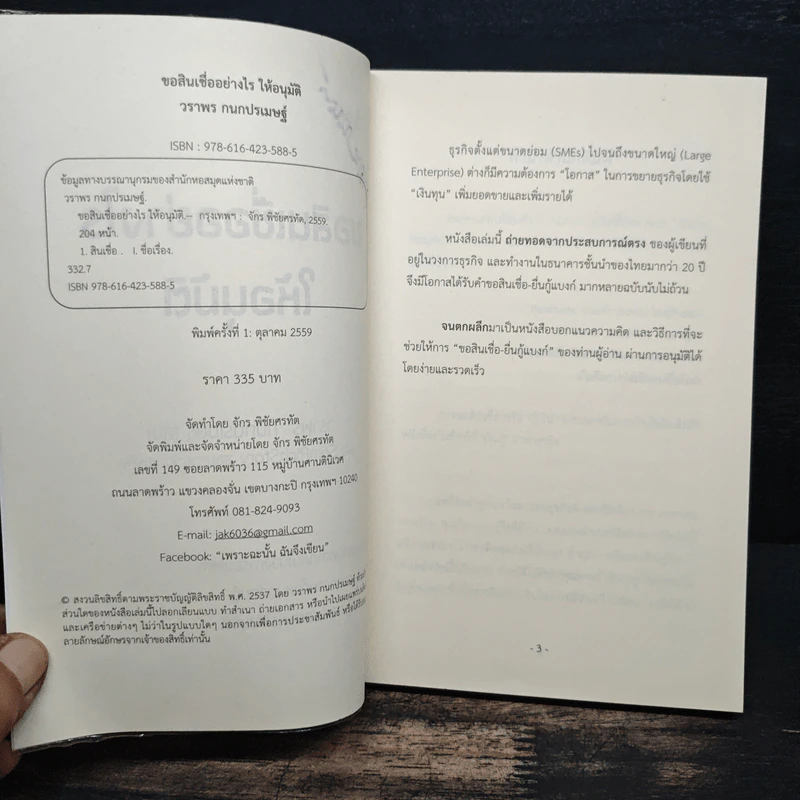 ขอสินเชื่ออย่างไร ให้อนุมัติ
วราพร กนกปรเมษฐ์
ISBN : 978-616-423-588-5
ข้อมูลทางบรรณานุกรมของสำนักหอสมุดแห่งชาติ
วราพร กนกปรเมษฐ์.
ขอสินเชื่ออย่างไร ให้อนุมัติ.-- กรุงเทพฯ : จักร พิชัยศรทัต, 2559.
204 หน้า.
1. สินเชื่อ. I. ชื่อเรื่อง.
332.7
ISBN 978-616-423-588-5
พิมพ์ครั้งที่ 1: ตุลาคม 2559
ราคา 335 บาท
จัดทำโดย จักร พิชัยศรทัต
จัดพิมพ์และจัดจำหน่ายโดย จักร พิชัยศรทัต
เลขที่ 149 ซอยลาดพร้าว 115 หมู่บ้านศานตินิเวศ
ถนนลาดพร้าว แขวงคลองจั่น เขตบางกะปิ กรุงเทพฯ 10240
โทรศัพท์ 081-824-9093
E-mail: jak6036@gmail.com
Facebook: “เพราะฉะนั้น ฉันจึงเขียน”
© สงวนลิขสิทธิ์ตามพระราชบัญญัติลิขสิทธิ์ พ.ศ. 2537 โดย วราพร กนกปรเมษฐ์
ส่วนใดของหนังสือเล่มนี้ไปลอกเลียนแบบ ทำสำเนา ถ่ายเอกสาร หรือนำไปเผยแพร่
และเครือข่ายต่างๆ ไม่ว่าในรูปแบบใดๆ นอกจากเพื่อการประชาสัมพันธ์ หรือได้รับ
ลายลักษณ์อักษรจากเจ้าของสิทธิ์เท่านั้น
ธุรกิจตั้งแต่ขนาดย่อม (SMEs) ไปจนถึงขนาดใหญ่ (Large
Enterprise) ต่างก็มีความต้องการ “โอกาส” ในการขยายธุรกิจโดยใช้
“เงินทุน” เพิ่มยอดขายและเพิ่มรายได้
หนังสือเล่มนี้ ถ่ายทอดจากประสบการณ์ตรง ของผู้เขียนที่
อยู่ในวงการธุรกิจ และทำงานในธนาคารชั้นนำของไทยมากว่า 20 ปี
จึงมีโอกาสได้รับคำขอสินเชื่อ-ยื่นกู้แบงก์ มากหลายฉบับนับไม่ถ้วน
จนตกผลึกมาเป็นหนังสือบอกแนวความคิด และวิธีการที่จะ
ช่วยให้การ “ขอสินเชื่อ-ยื่นกู้แบงก์” ของท่านผู้อ่าน ผ่านการอนุมัติได้
โดยง่ายและรวดเร็ว
- 3 -